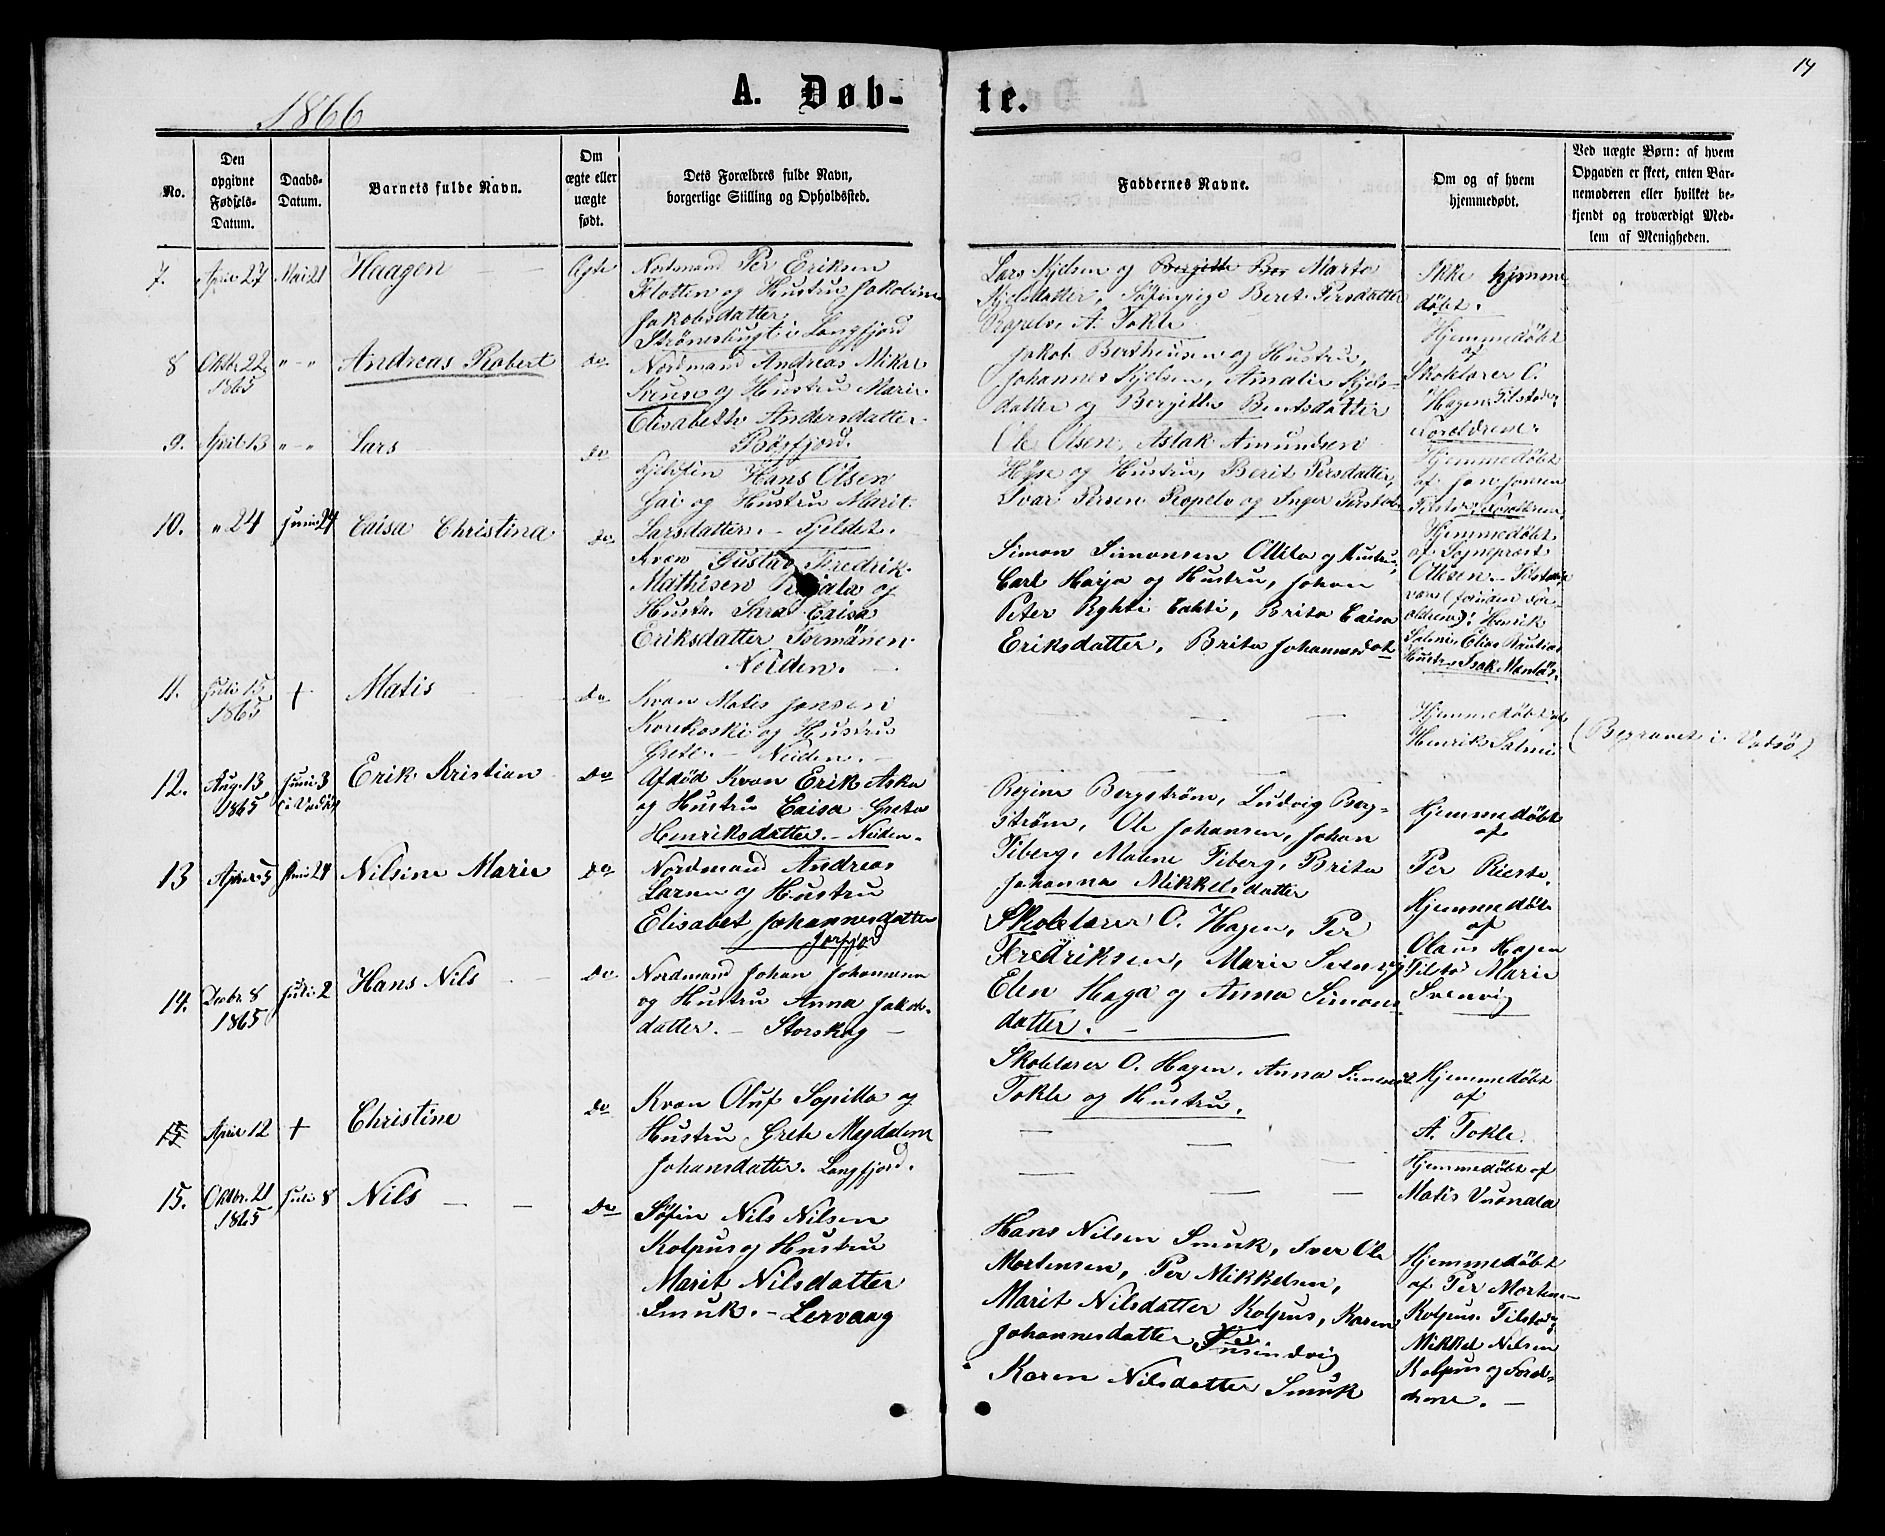 14
1866
A. Døb-
te.
No.
Den opgivne Fødsels-Datum.
Daabs-Datum.
Barnets fulde Navn.
Om ægte eller uægte født.
Dets Forældres fulde Navn, borgerlige Stilling og Opholdssted.
Faddernes Navne.
Om og af hvem hjemmedøbt.
Ved uægte Børn: af hvem Opgaven er skeet, enten Barnemoderen eller hvilket bekjendt og troværdigt Medlem af Menigheden.
7. April 27 Mai 21 Haagen Ægte
Nordmand Per Eriksen
Flotten og Hustru Jakobine
Jakobsdatter.
Strømesbugt i Langfjord
Lars Kjelsen og Bergitte Ber Marta
Kjelsdatter, Søfinpige Beret Persdatter
Piopelv, A. Tokle
Ikke hjemme
døbt.
8 Oktbr. 22 1865 " - " Andreas Robert do
Nordmand Andreas Mikal
og Hustru Marie
Elisabeth Andersdatter
Bøgfjord.
Jakob Bertheusen og Hustru,
Johannes Kjelsen, Amalie Kjels-
datter og Bergitte Bentsdatter
Hjemmedøbt
af
Skolelærer O.
Hagen. Tilstede
Forældrene.
9. April 13 " - " Lars do
Fjeldfin Hans Olsen
Gai og Hustru Marit
Larsdatter. - Fjeldet.
Ole Olsen, Aslak Amundsen
og Hustru, Berit Persdatter,
Ivar Persen Piopelv og Inger Persdat
Hjemmedøbt
af Jon Jonsen
Tilstede Forældrene.
10. " 24 Juni 24 Caisa Christina do
Kvæn Gustav Fredrik
Mathisen og
Hustr. Sara Caisa
Eriksdatter Tormänen
Neiden. -
Simon Simonsen Ollila og Hustru,
Carl Harja og Hustru, Johan
Peter Ryhti Lahti, Brita Caisa
Eriksdatter, Brita Johannesdat
Hjemmedøbt
af Sognepræst
Ottesen. Tilstede
vare (foruden For-
ældrene): Henrik
Salmi, Elias Rautios
Hustru, Isak Mantös.
11. Juli 15 1865 + Matis do
Kvæn Matis Jonsen
Korekoski og Hustru
Grete. - Neiden. -
Hjemmedøbt af
Henrik Salmi
(Begravet i Vadsö)
12. Aug. 13 1865 Juni 3 (i Vadsö) Erik Kristian Do
Afdöd Kvæn Erik Aska
og Hustru Caisa Greta
Henriksdatter. - Neiden.
Regine Bergström, Ludvig Berg-
ström, Ole Johansen, Johan
Fiberg, Malene Fiberg, Brita
Johanna Mikkelsdatter
Hjemmedøbt
af
Per Rieste.
13 April 5 Juni 24 Nilsine Marie do
Nordmand Andreas
Larsen og Hustru
Elisabet Johannesdatter
Jarfjord
Skolelærer O. Hagen, Per
Fredriksen, Marie Svenvig
Elen Haga og Anna Simons
datter. -
Hjemmedøbt
af
Olaus Hagen
Tilst. Marie
Svenvig
14. Decbr. 8 1865 Juli 2 Hans Nils do
Nordmand Johan Johannesen
og Hustru Anna Jakobs-
datter. - Storskog -
Skolelærer O. Hagen, Anna Simonsd.
Tokle og Hustru.
Hjemmedøbt
af
A. Tokle.
15 April 12 + Christine do
Kvæn Oluf Sopilla og
Hustru Grete Magdalene
Johansdatter. Langfjord.
Hjemmedøbt af
Matis Vuonala
15. Oktbr. 21 1865 Juli 8 Nils Do
Søfin Nils Nilsen
Kolpus og Hustru
Marit Nilsdatter
Smuk. - Lervaag
Hans Nilsen Smuk, Iver Ole
Mortensen, Per Mikkelsen,
Marit Nilsdatter Kolpus, Karen
Johannesdatter
Karen Nilsdatter Smuk
Hjemmedøbt
af Per Morten-
Kolpus. Tilstede
Mikkel Nilsen
Kolpus og Foræl-
drene. -